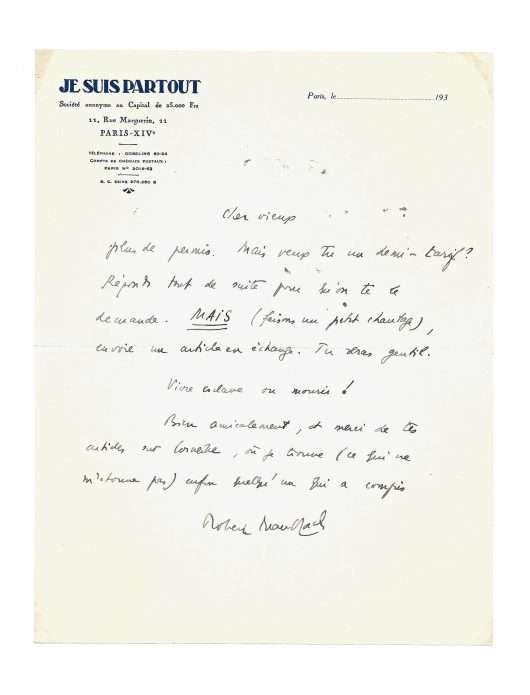 JE SUIS PARTOUT
Société anonyme au Capital de 25.000 Frs
11, Rue Marguerin, 11
PARIS-XIVe
TÉLÉPHONE : GOBELINS
COMPTE DE CHÈQUES POSTAUX :
PARIS No
R. C. SEINE
Paris, le 193
Cher vieux
plus de permis. Mais veux tu un demi-tarif ?
Réponds tout de suite pour qu'on te le
demande. MAIS (faisons un petit chantage),
envoie un article en échange. Tu seras gentil.
Vivre esclave ou mourir !
Bien amicalement, et merci de tes
articles sur Corneille, où je trouve (ce qui ne
m'étonne pas) enfin quelqu'un qui a compris
Robert Brasillach